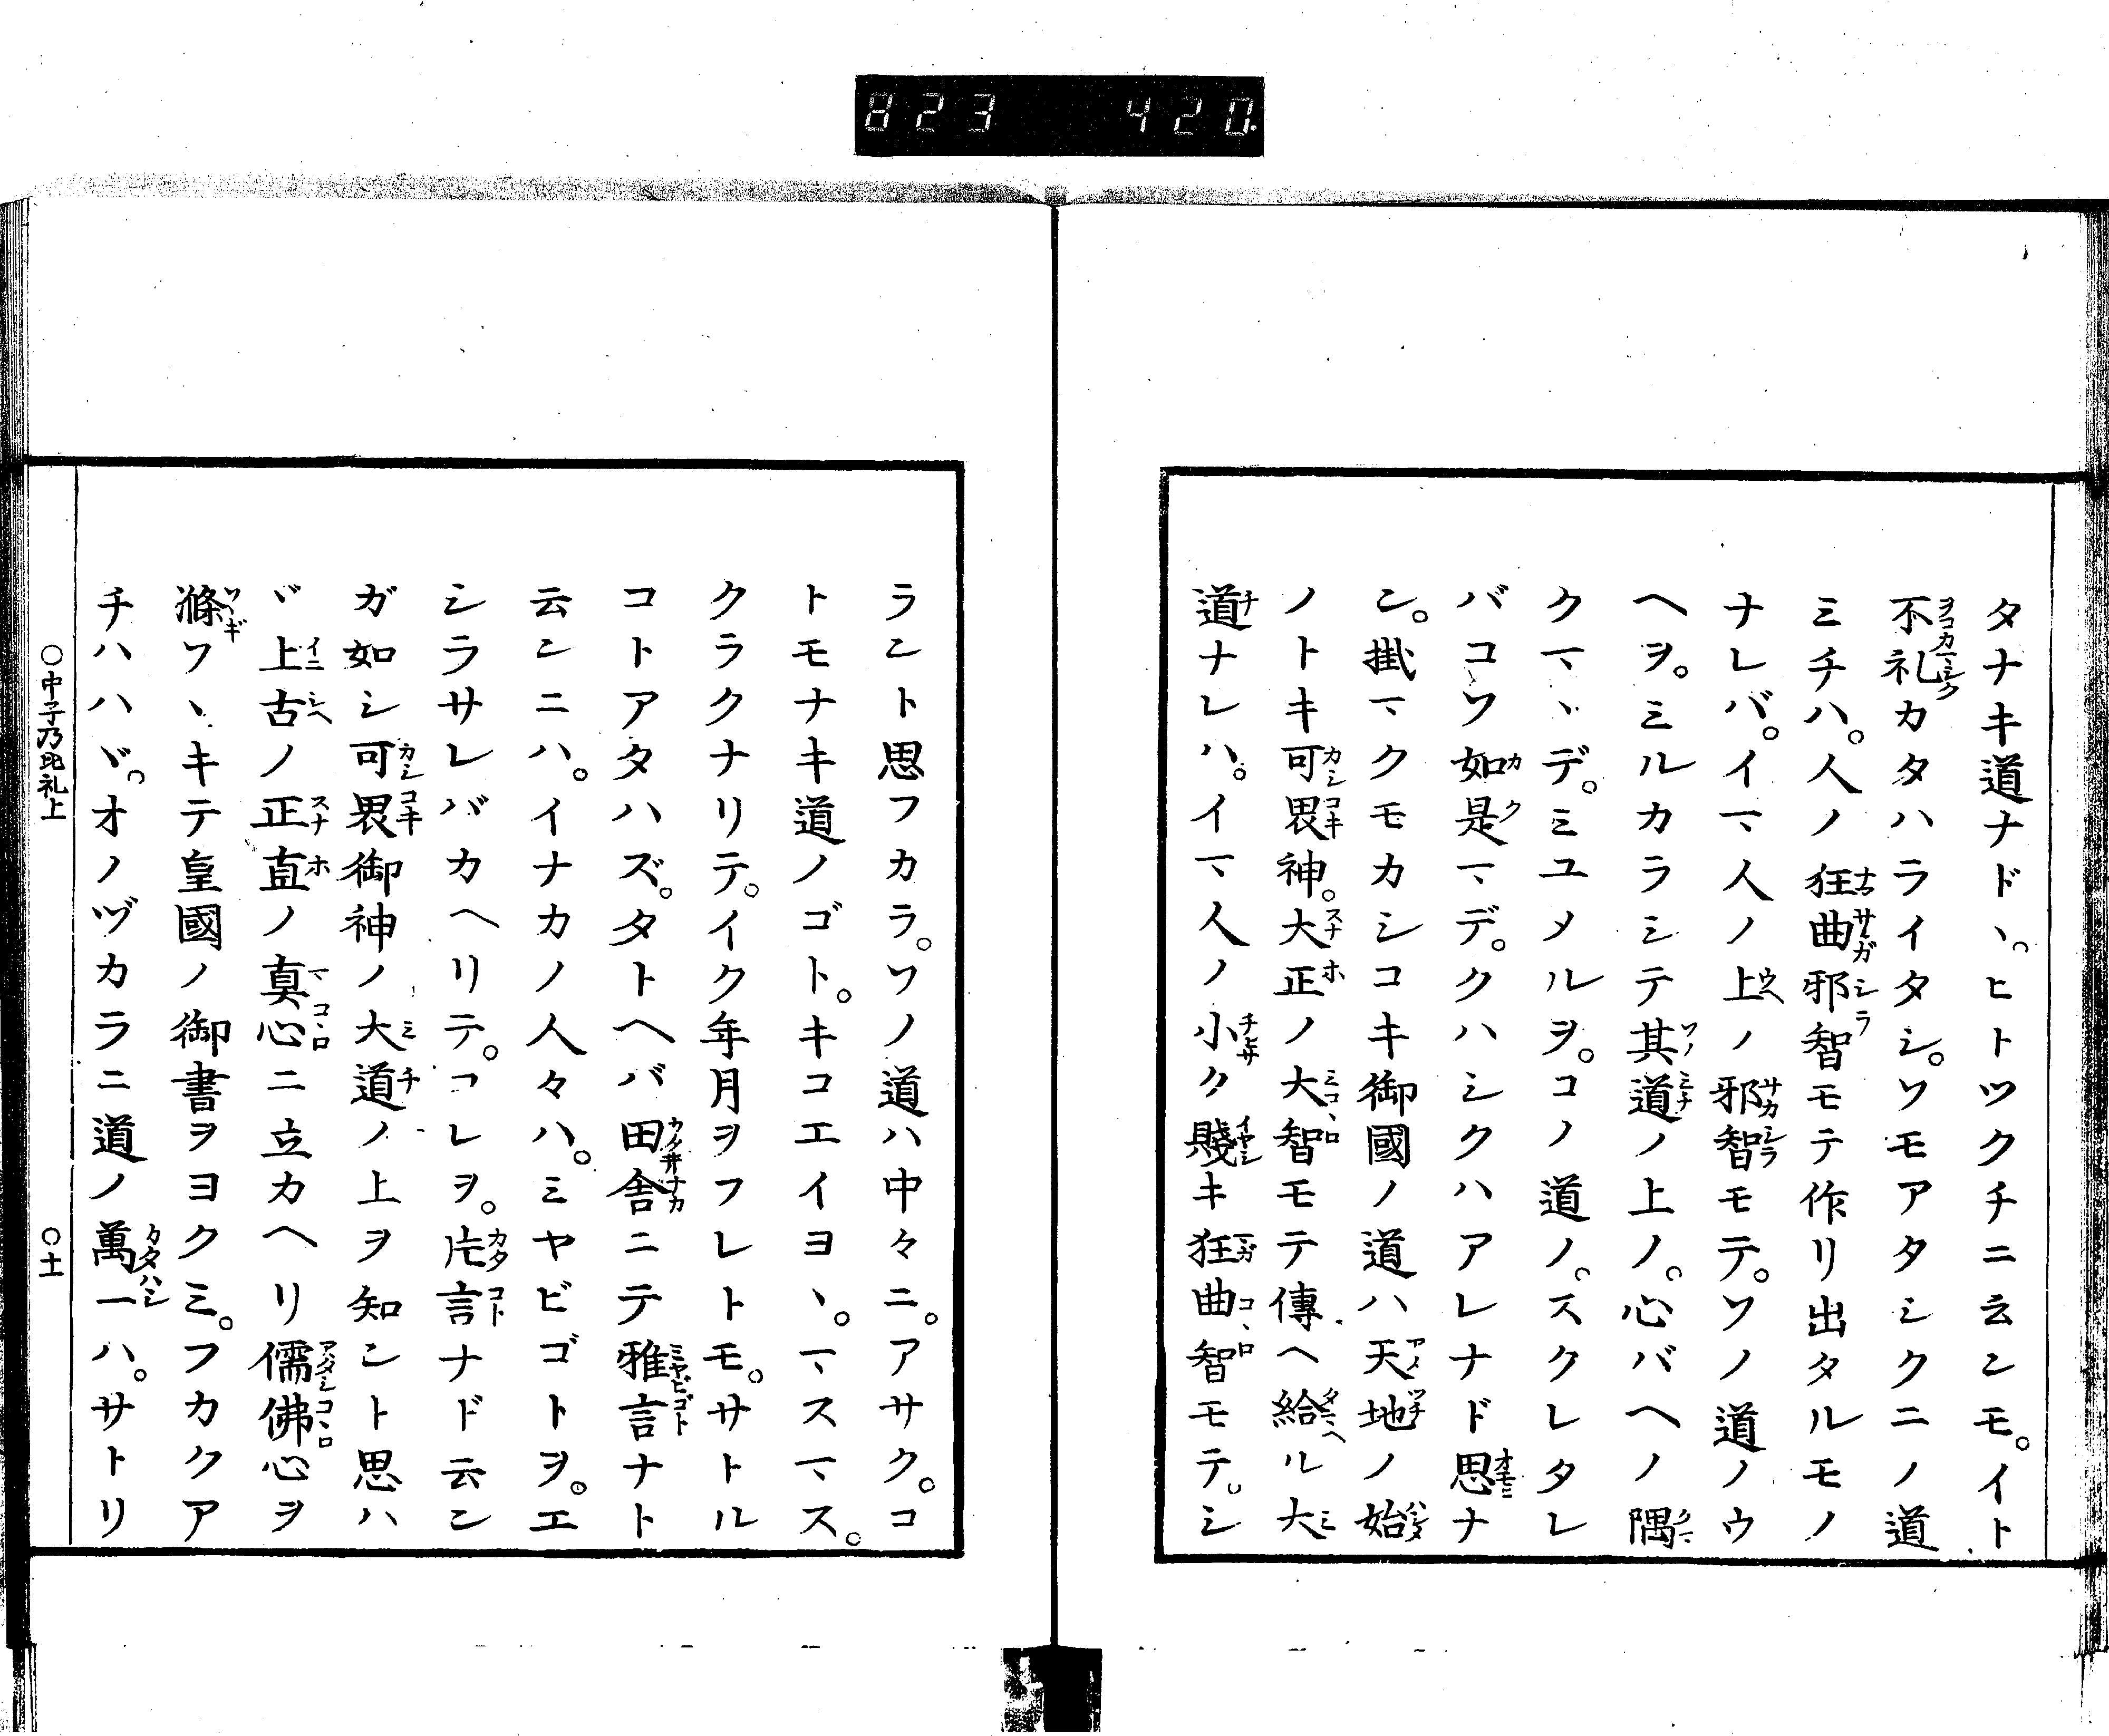 823 420.
タナキ道ナドヽ。ヒトツクチニ云ンモ。イト
不礼カタハライタシ。ソモアタシクニノ道
ミチハ。人ノ狂曲邪智モテ作リ出タルモノ
ナレバ。イマヽ人ノ上ノ邪智モテ。ソノ道ノウ
ヘヲ。ミルカラシテ其道ノ上ノ。心バヘノ隅
クマヽデ。ミユメルヲ。コノ道ノ。スクレタレ
バコソ如是マヽデ。クハシクハアレナド思ナ
ン。掛マクモカシコキ御國ノ道ハ天地ノ始
ノトキ可畏神。大正ノ大智モテ傳ヘ給ル大
道ナレハ。イマヽ人ノ小ク賤キ狂曲智モテ。シ
ラント思フカラ。ソノ道ハ中々ニ。アサク。コ
トモナキ道ノゴト。キコエイヨヽ。マスマス。
クラクナリテ。イク年月ヲフレトモ。サトル
コトアタハズ。タトヘバ田舎ニテ雅言ナト
云ンニハ。イナカノ人々ハ。ミヤビゴトヲ。エ
シラサレバカヘリテ。コレヲ。片言ナド云ン
ガ如シ可畏御神ノ大道ノ上ヲ知ント思ハ
バ上古ノ正直ノ真心ニ立カヘリ儒佛心ヲ
滌ソヽキテ皇國ノ御書ヲヨクミ。フカクア
チハハヾ。オノヅカラニ道ノ萬一ハ。サトリ
○中子乃比礼上 ○十一